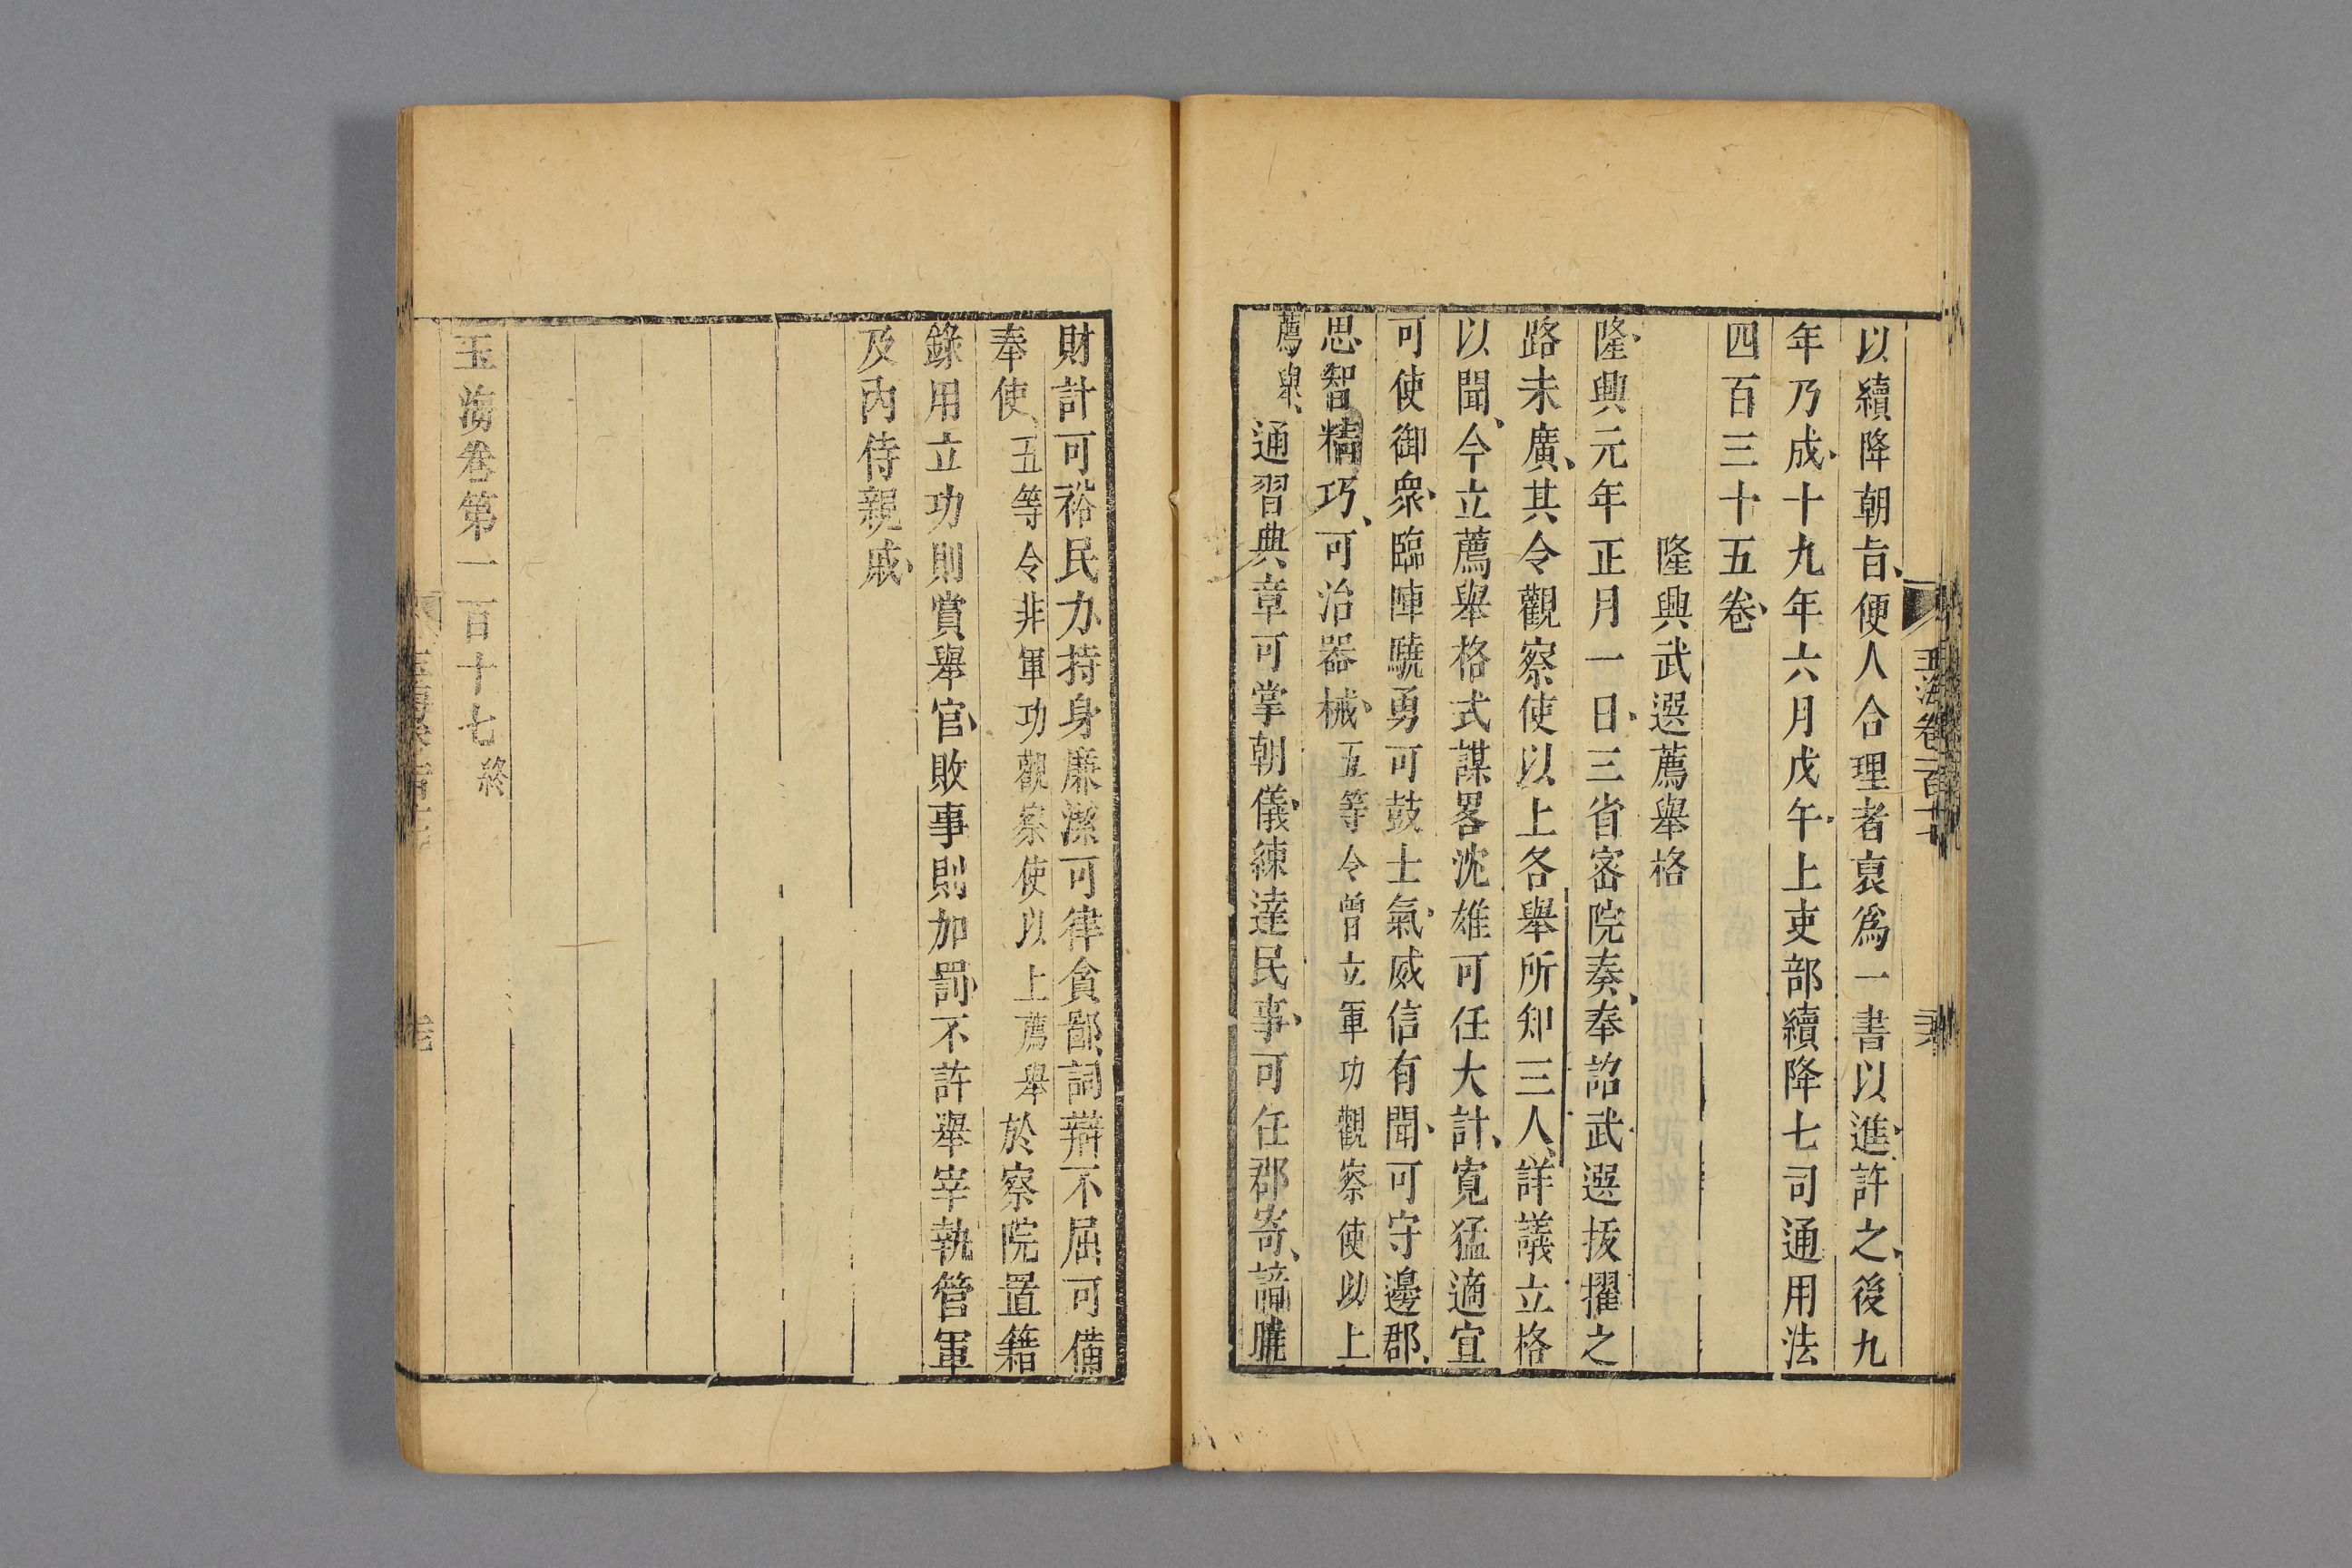 以續降朝旨便人合理者裒爲一書以進許之後九
年乃成十九年六月戊午上吏部續降七司通用法
四百三十五卷
隆興武選薦舉格
隆興元年正月一日三省密院奏奉詔武選拔擢之
路未廣其令觀察使以上各舉所知三人詳議立格
以聞今立薦舉格式謀畧沈雄可任大計寬猛適宜
可使御衆臨陣驍勇可鼓士氣威信有聞可守邊郡
思智精巧可治器械五等令曾立軍功觀察使以上
薦舉通習典章可掌朝儀練達民事可任郡寄諳曉
財計可裕民力持身廉潔可律貪鄙詞辯不屈可備
奉使五等令非軍功觀察使以上薦舉於察院置籍
錄用立功則賞舉官敗事則加罰不許舉宰執管軍
及內侍親戚
玉海卷第一百十七終
玉海卷一百十七